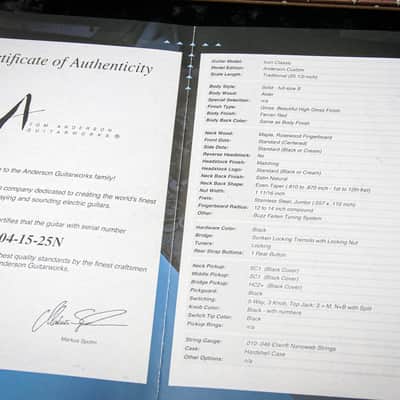 Certificate of Authenticity
TOM ANDERSON
GUITARWORKS ®
to the Anderson Guitarworks family!
company dedicated to creating the world's finest
playing and sounding electric guitars.
certifies that the guitar with serial number
04-15-25N
highest quality standards by the finest craftsmen
Anderson Guitarworks.
Markus Spohn
Guitar Model: Icon Classic
Model Edition: Anderson Custom
Scale Length: Traditional (25 1/2-inch)
Body Style: Solid - full-size S
Body Wood: Alder
Special Selection: n/a
Finish Type: Gloss: Beautiful High Gloss Finish
Body Finish: Ferrari Red
Body Back Color: Same as Body Finish
Neck Wood: Maple, Rosewood Fingerboard
Front Dots: Standard (Centered)
Side Dots: Standard (Black or Cream)
Reverse Headstock: No
Headstock Finish: Matching
Headstock Logo: Standard (Black or Cream)
Neck Back Finish: Satin Natural
Neck Back Shape: Even Taper (.810 to .870 inch - 1st to 12th fret)
Nut Width: 1 11/16 inch
Frets: Stainless Steel, Jumbo (.057 x .110 inch)
Fingerboard Radius: 12 to 14 inch compound
Other: Buzz Feiten Tuning System
Hardware Color: Black
Bridge: Gunken Locking Tremolo with Locking Nut
Tuners: Locking
Rear Strap Buttons: 1 Rear Button
Neck Pickup: SC1 (Black Cover)
Middle Pickup: SC1 (Black Cover)
Bridge Pickup: HC2+ (Black Cover)
Pickguard: Black
Switching: 5-Way, 3 Knob, Top Jack: 3 = M, N+B with Split
Knob Color: Black - with numbers
Switch Tip Color: Black
Pickup Rings: n/a
String Gauge: .010-.046 Elixir® Nanoweb Strings
Case: Hardshell Case
Other Options: n/a